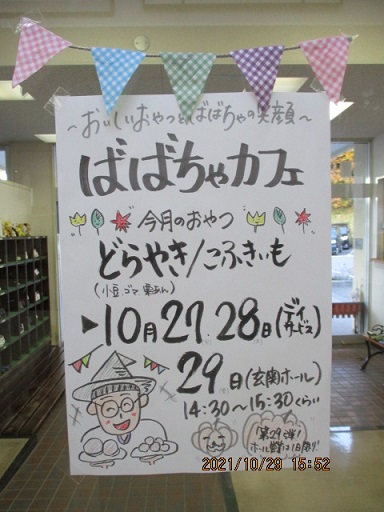 ～おいしいおやつとばばちゃの笑顔～
ばばちゃカフェ
今月のおやつ
どらやき/こふきいも
(小豆.ゴマ.栗あん)
▶10月27.28日(デイサービス)
29日(玄関ホール)
14:30～15:30くらい
第29弾!
2021/10/29 15:52